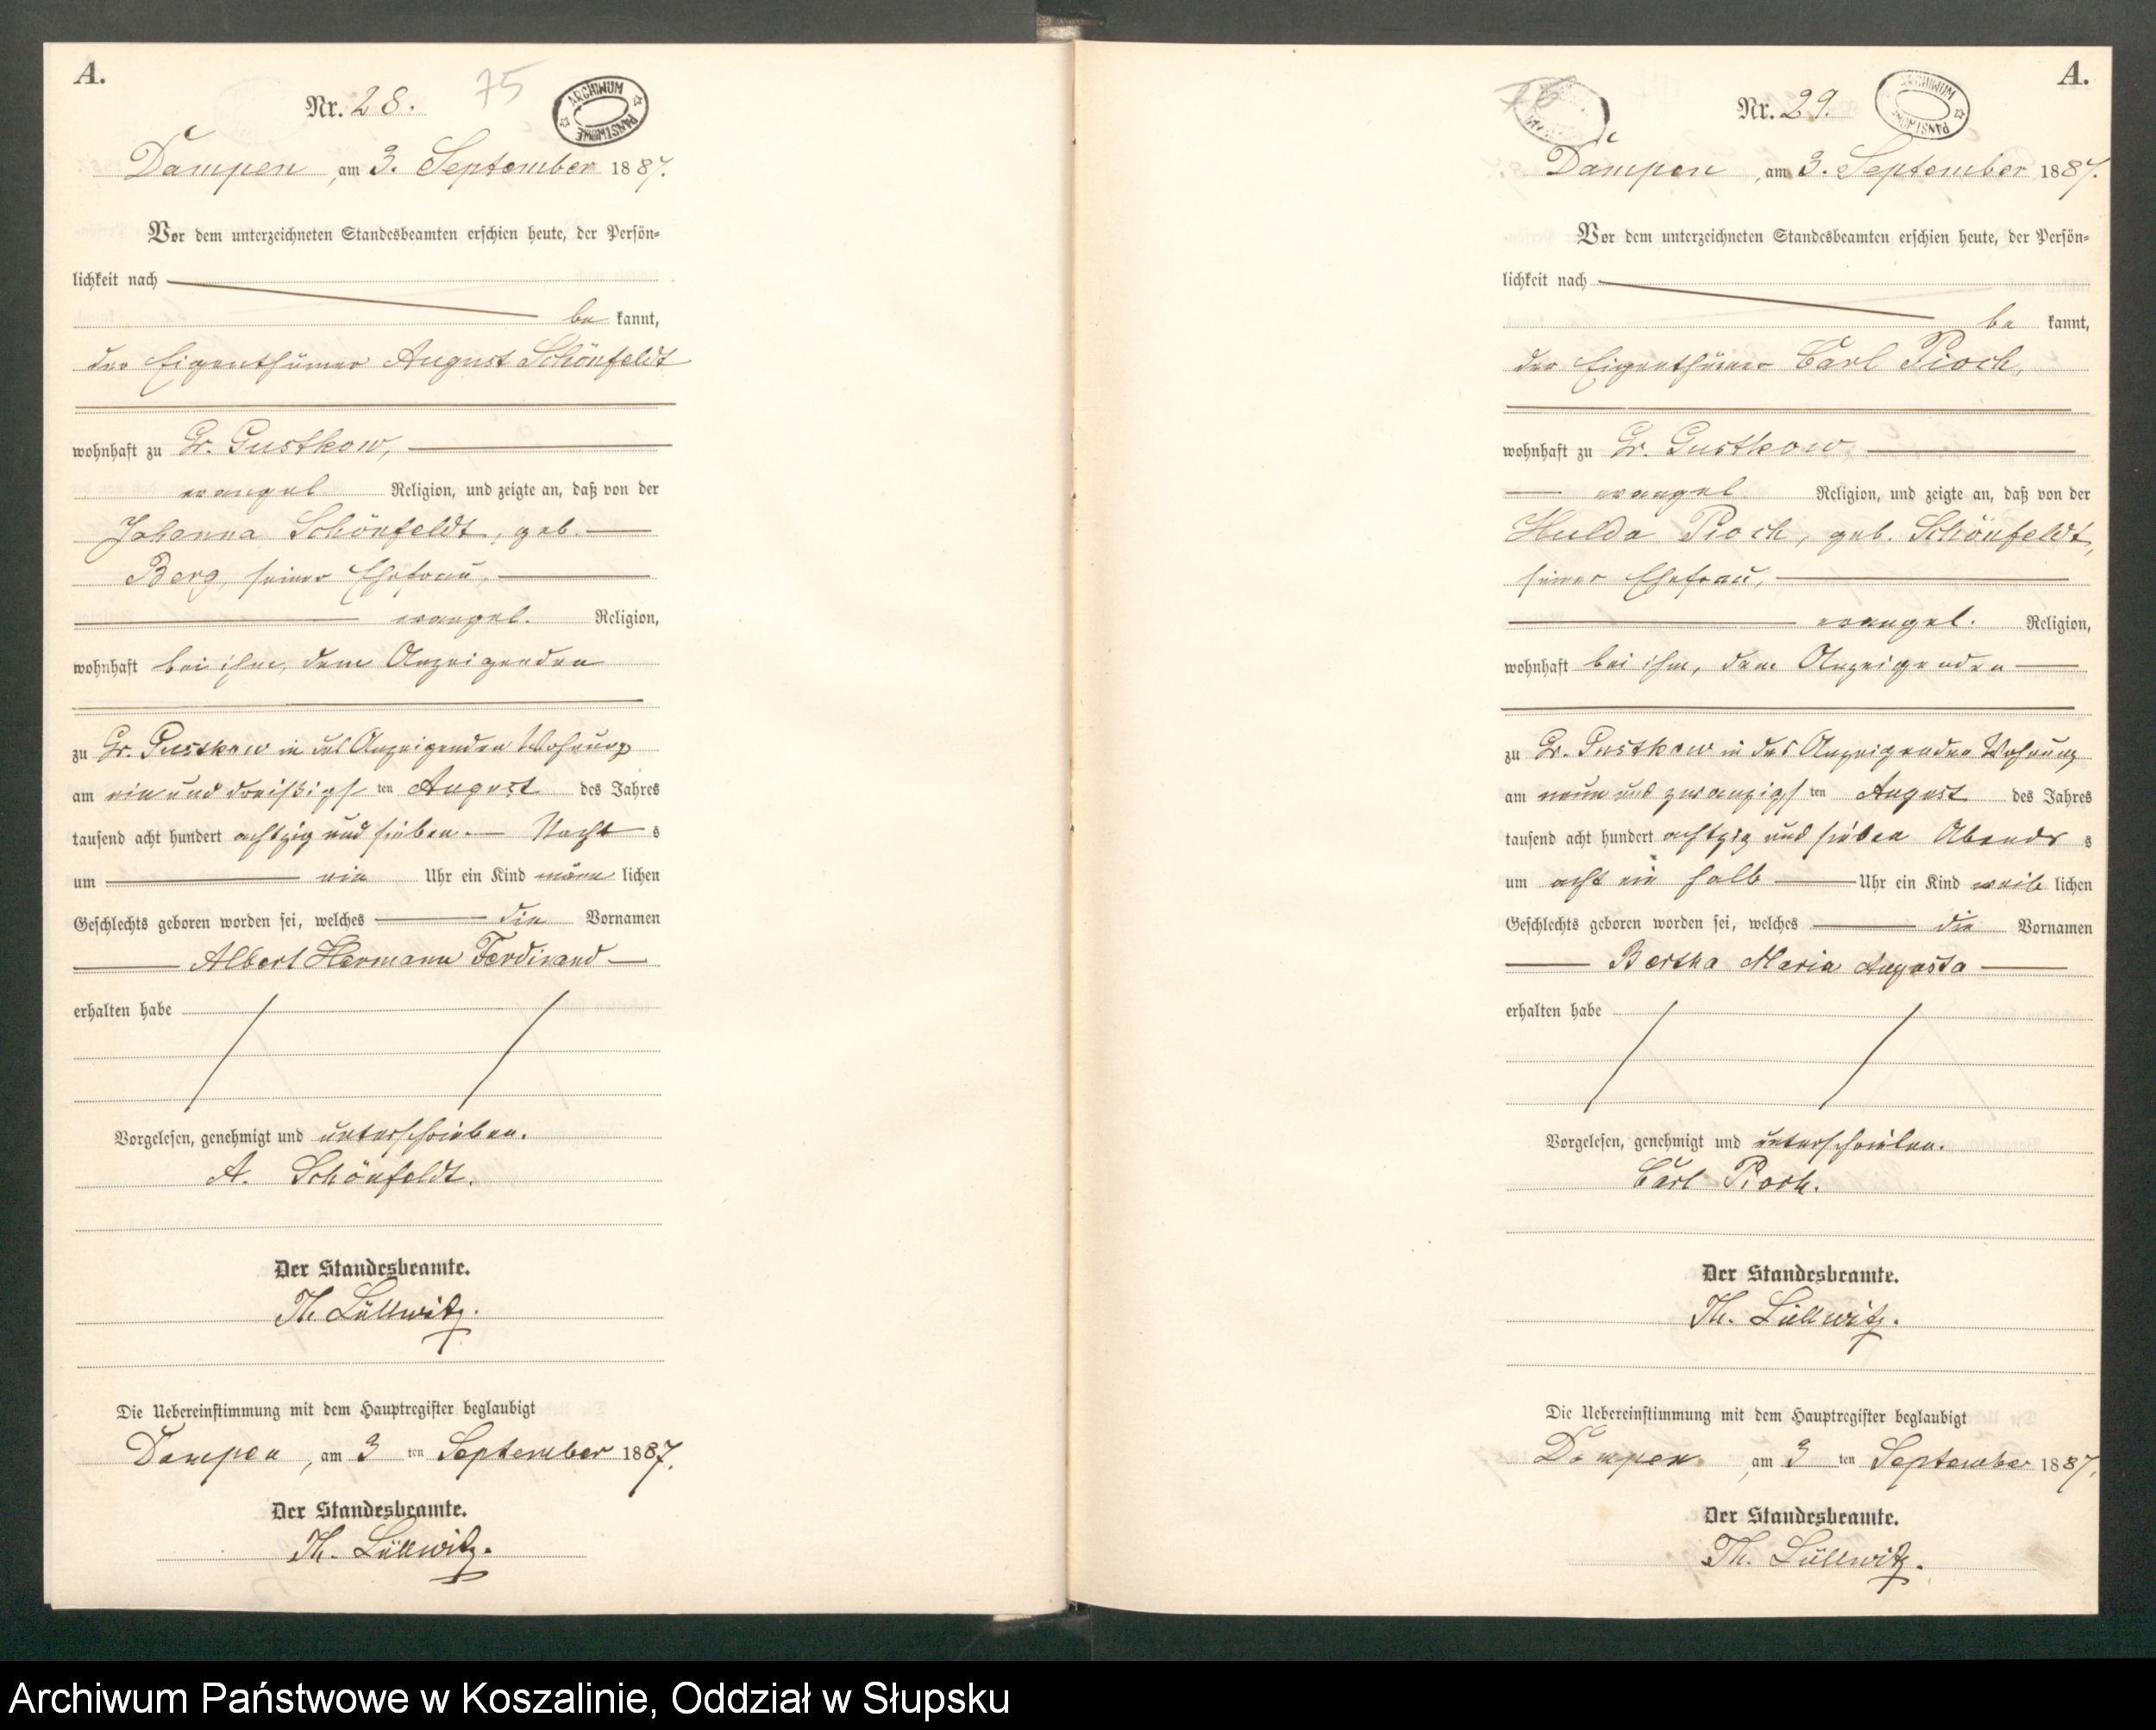 A.
Nr. 28.
75
ARCHIWUM PAŃSTWOWE
Dampen, am 3. September 1887.
Vor dem unterzeichneten Standesbeamten erschien heute, der Persön-
lichkeit nach
be kannt,
der Eigenthümer August Schönfeldt
wohnhaft zu Gr. Gustkow,
evangel. Religion, und zeigte an, daß von der
Johanna Schönfeldt, geb.
Berg, seiner Ehefrau,
evangel. Religion,
wohnhaft bei ihm, dem Anzeigenden
zu Gr. Gustkow in des Anzeigenden Wohnung
am ein und dreißigs ten August des Jahres
tausend acht hundert achtzig und sieben Nacht s
um ein Uhr ein Kind männ lichen
Geschlechts geboren worden sei, welches die Vornamen
Albert Hermann Ferdinand
erhalten habe
Vorgelesen, genehmigt und unterschrieben.
A. Schönfeldt.
Der Standesbeamte.
Th. Lüllwitz.
Die Uebereinstimmung mit dem Hauptregister beglaubigt
Dampen, am 3 ten September 1887.
Der Standesbeamte.
Th. Lüllwitz.
A.
76
Nr. 29.
ARCHIWUM PAŃSTWOWE
Dampen, am 3. September 1887.
Vor dem unterzeichneten Standesbeamten erschien heute, der Persön-
lichkeit nach
be kannt,
der Eigenthümer Carl Pioch,
wohnhaft zu Gr. Gustkow,
evangel. Religion, und zeigte an, daß von der
Hulda Pioch, geb. Schönfeldt,
seiner Ehefrau,
evangel. Religion,
wohnhaft bei ihm, dem Anzeigenden
zu Gr. Gustkow in des Anzeigenden Wohnung
am neun und zwanzigs ten August des Jahres
tausend acht hundert achtzig und sieben Abends s
um acht ein halb Uhr ein Kind weib lichen
Geschlechts geboren worden sei, welches die Vornamen
Bertha Maria Augusta
erhalten habe
Vorgelesen, genehmigt und unterschrieben.
Carl Pioch.
Der Standesbeamte.
Th. Lüllwitz.
Die Uebereinstimmung mit dem Hauptregister beglaubigt
Dampen, am 3 ten September 1887.
Der Standesbeamte.
Th. Lüllwitz.
Archiwum Państwowe w Koszalinie, Oddział w Słupsku